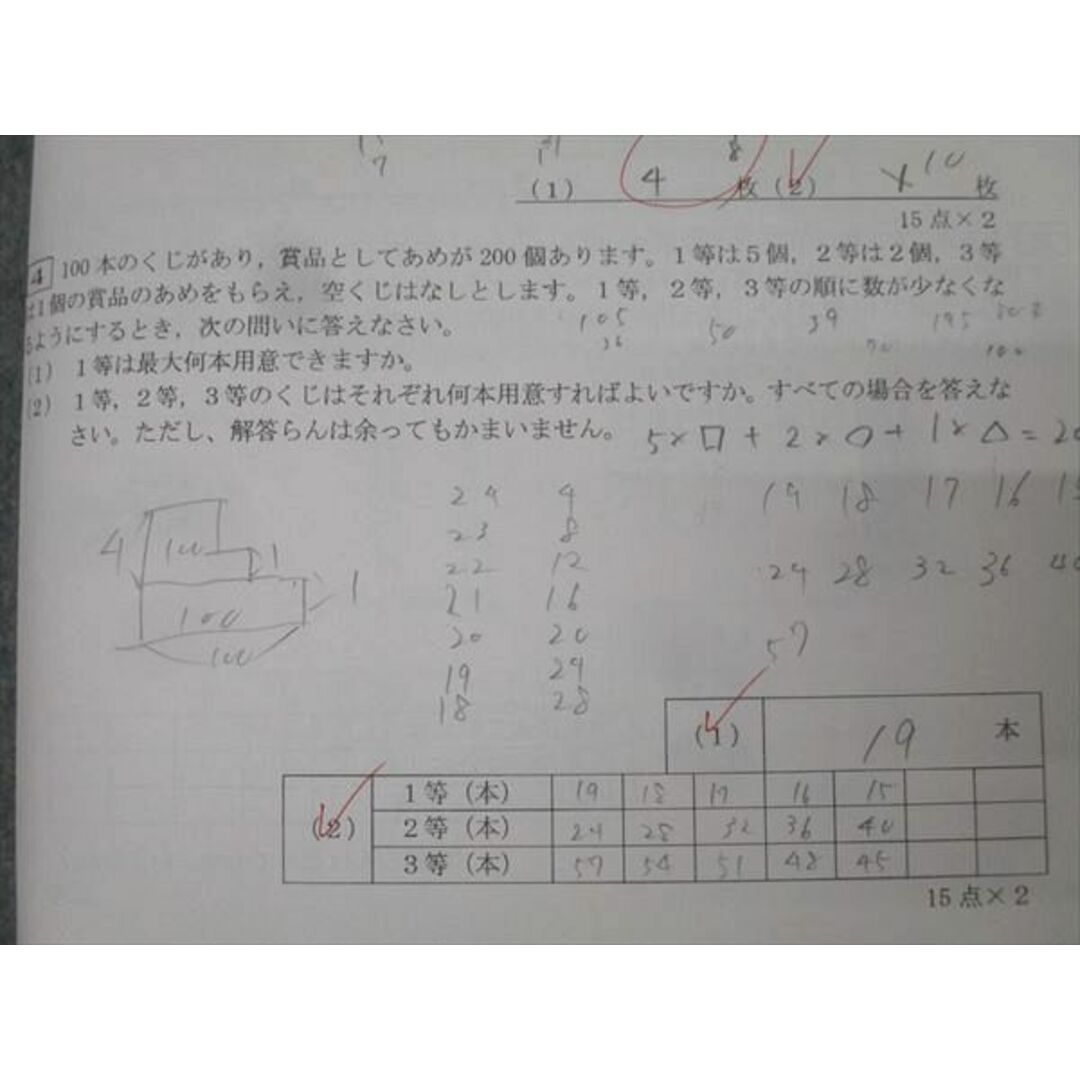 7
8
(1) 4 枚 (2) 10 枚
15点×2
4 100本のくじがあり，賞品としてあめが200個あります。1等は5個，2等は2個，3等
は1個の賞品のあめをもらえ，空くじはなしとします。1等，2等，3等の順に数が少なくな
るようにするとき，次の問いに答えなさい。
105 50 39 195
36 100
(1) 1等は最大何本用意できますか。
(2) 1等，2等，3等のくじはそれぞれ何本用意すればよいですか。すべての場合を答えな
さい。ただし、解答らんは余ってもかまいません。
5×□+2×○+1×△=20
24 4
23 8
22 12
21 16
20 20
19 24
18 28
19 18 17 16 15
24 28 32 36 40
57
4 100 1
100 1
100
(1) 19 本
(2) 1等（本） 19 18 17 16 15
2等（本） 24 28 32 36 40
3等（本） 57 54 51 48 45
15点×2